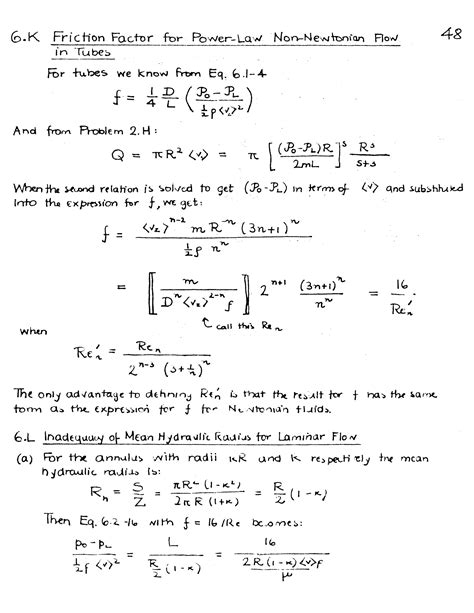 6.K Friction Factor for Power-Law Non-Newtonian Flow 48
in Tubes
For tubes we know from Eq. 6.1-4
f = 1/4 D/L ( (𝒫₀ - 𝒫_L) / (½ρ<v_z>²) )
And from Problem 2.H:
Q = πR² <v_z> = π [ (𝒫₀-𝒫_L)R / 2mL ]^s R³/(s+3)
When the second relation is solved to get (𝒫₀-𝒫_L) in terms of <v_z> and substituted
into the expression for f, we get:
f = <v_z>^(n-2) m R^(-n) (3n+1)^n / (½ρ n^n)
= [ m / (D^n <v_z>^(2-n) ρ) ] 2^(n+1) (3n+1)^n / n^n = 16 / Re'_n
call this Re_n
when
Re'_n = Re_n / (2^(n-3) (3+1/n)^n)
The only advantage to defining Re'_n is that the result for f has the same
form as the expression for f for Newtonian fluids.
6.L Inadequacy of Mean Hydraulic Radius for Laminar Flow
(a) For the annulus with radii κR and R respectively the mean
hydraulic radius is:
R_h = S/Z = πR²(1-κ²) / 2πR(1+κ) = R/2 (1-κ)
Then Eq. 6.2-16 with f = 16/Re becomes:
(p₀-p_L) / (½ρ<v_z>²) = L / (R/2 (1-κ)) 16 / (2R(1-κ)<v_z>ρ / μ)